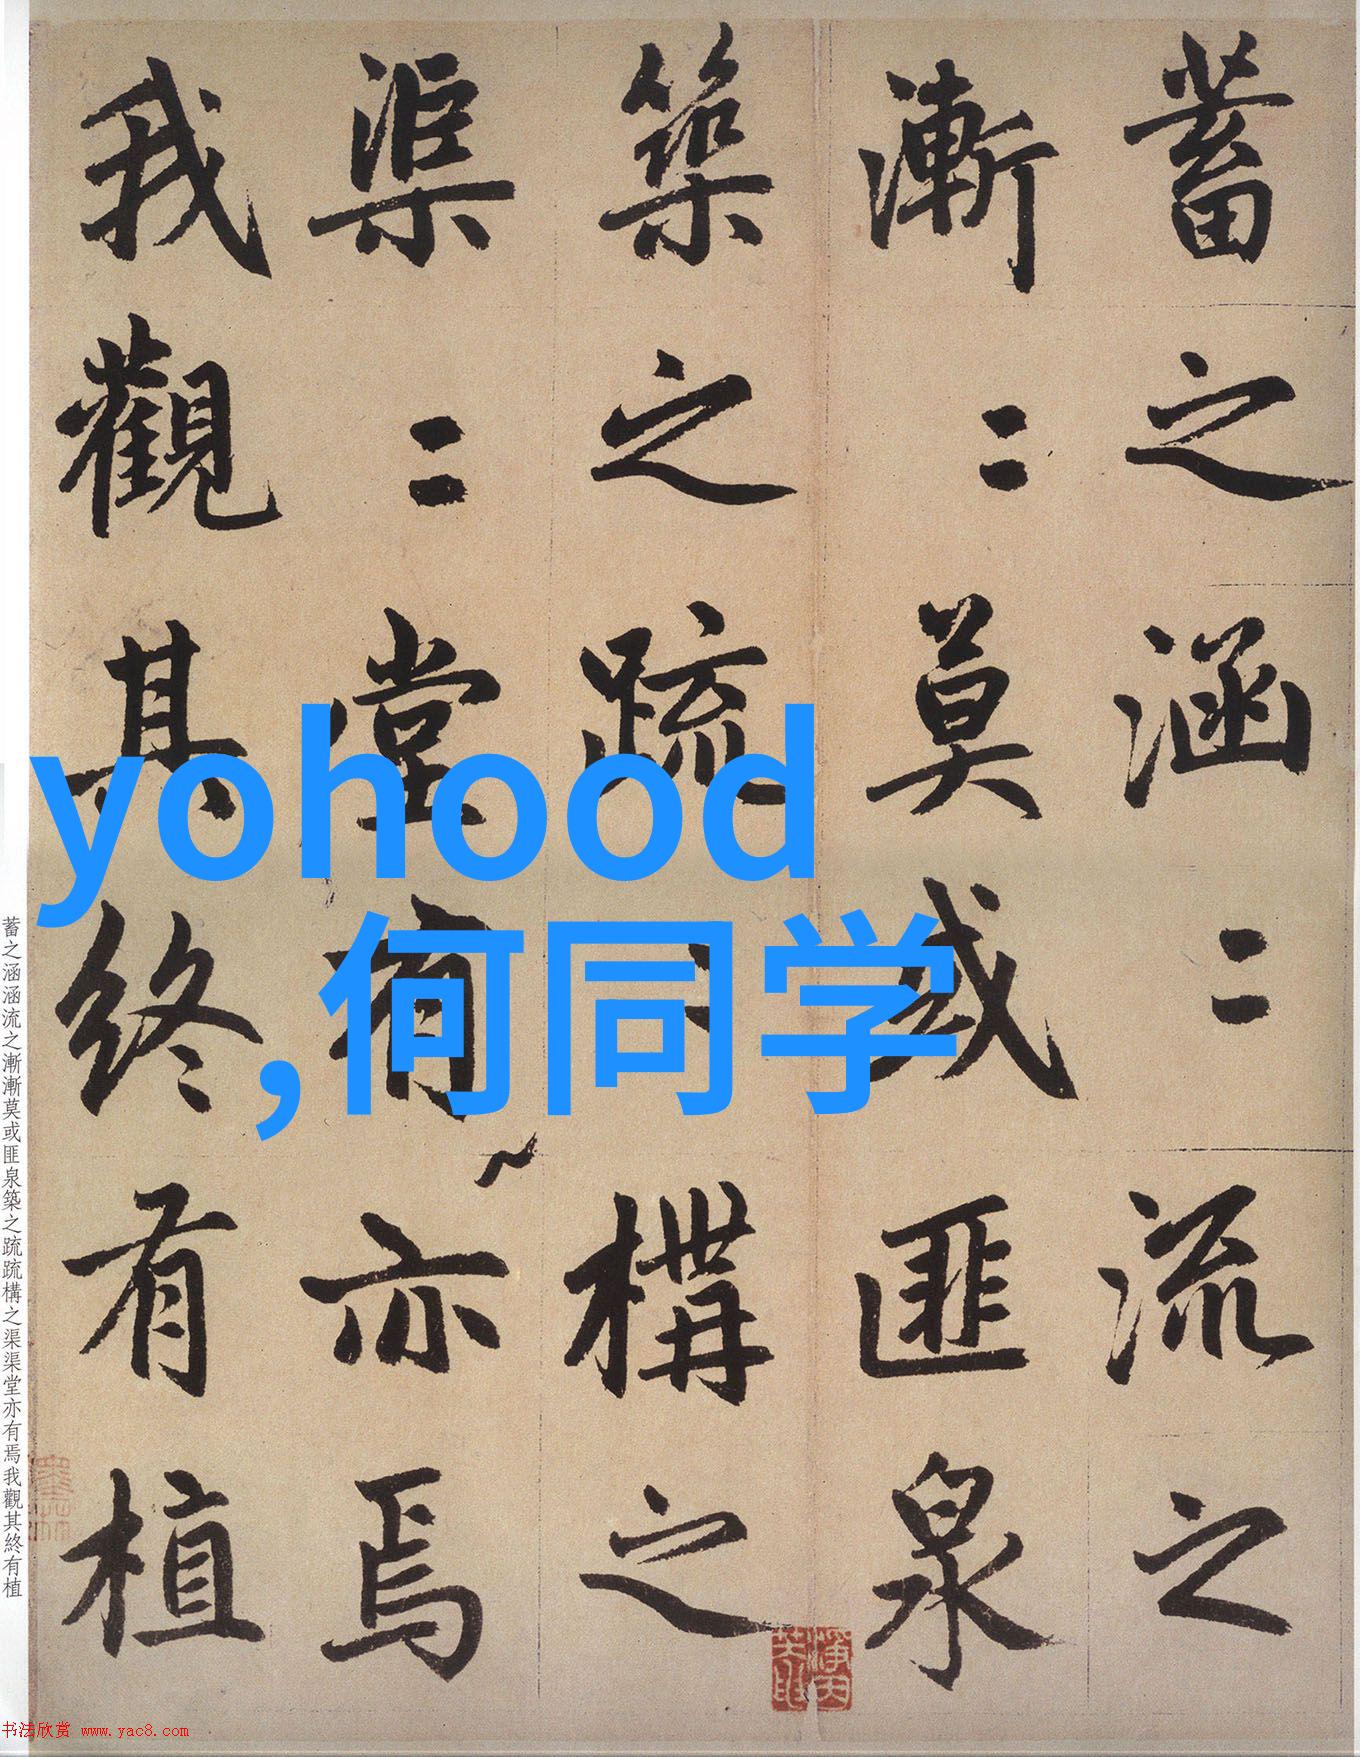 蓄之涵〻流之
漸〻莫或匪泉
築之疏〻構之
渠〻堂有亦焉
我觀其終有植
yohood
,何同学
蓄之涵涵流之漸漸莫或匪泉築之疏疏構之渠渠堂亦有焉我觀其終有植
书法欣赏 www.yac8.com